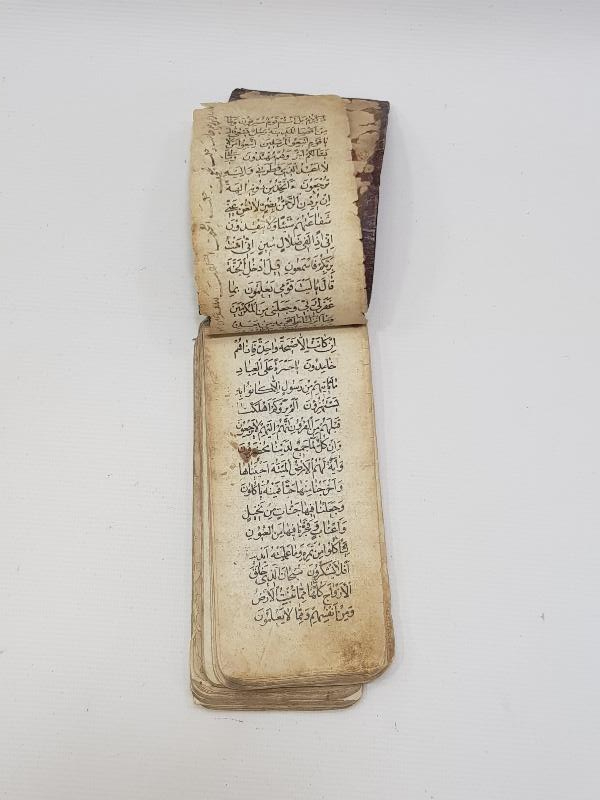 ذكرتم بل انتم قوم مسرفون وجاء
من اقصا المدينة رجل يسعى قال
يا قوم اتبعوا المرسلين اتبعوا من لا
يسئلكم اجرا وهم مهتدون وما لي
لا اعبد الذي فطرني واليه
ترجعون ءاتخذ من دونه الهة
ان يردن الرحمن بضر لا تغن عني
شفاعتهم شيئا ولا ينقذون
اني اذا لفي ضلال مبين اني امنت
بربكم فاسمعون قيل ادخل الجنة
قال يا ليت قومي يعلمون بما
غفر لي ربي وجعلني من المكرمين
ان كانت الا صيحة واحدة فاذا هم
خامدون يا حسرة على العباد
ما ياتيهم من رسول الا كانوا به
يستهزؤن الم يروا كم اهلكنا
قبلهم من القرون انهم اليهم لا يرجعون
وان كل لما جميع لدينا محضرون
واية لهم الارض الميتة احييناها
واخرجنا منها حبا فمنه ياكلون
وجعلنا فيها جنات من نخيل
واعناب وفجرنا فيها من العيون
لياكلوا من ثمره وما عملته ايديهم
افلا يشكرون سبحان الذي خلق
الازواج كلها مما تنبت الارض
ومن انفسهم ومما لا يعلمون